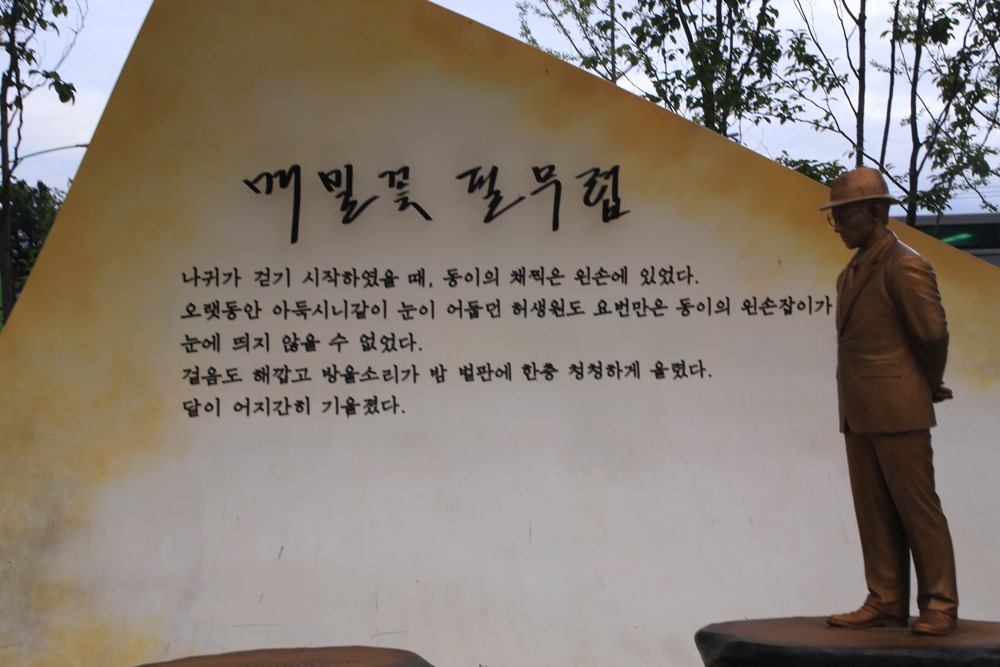 메밀꽃 필 무렵
나귀가 걷기 시작하였을 때, 동이의 채찍은 왼손에 있었다.
오랫동안 아둑시니같이 눈이 어둡던 허생원도 요번만은 동이의 왼손잡이가
눈에 띄지 않을 수 없었다.
걸음도 해깝고 방울소리가 밤 벌판에 한층 청청하게 울렸다.
달이 어지간히 기울졌다.